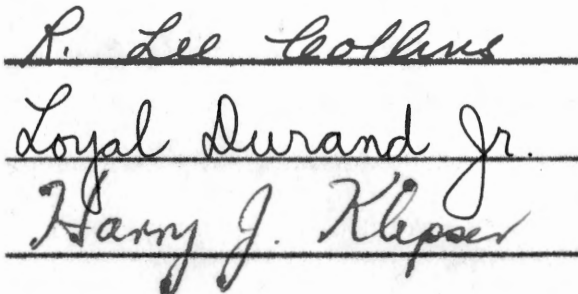 R. Lee Collins
Loyal Durand Jr.
Harry J. Klepser